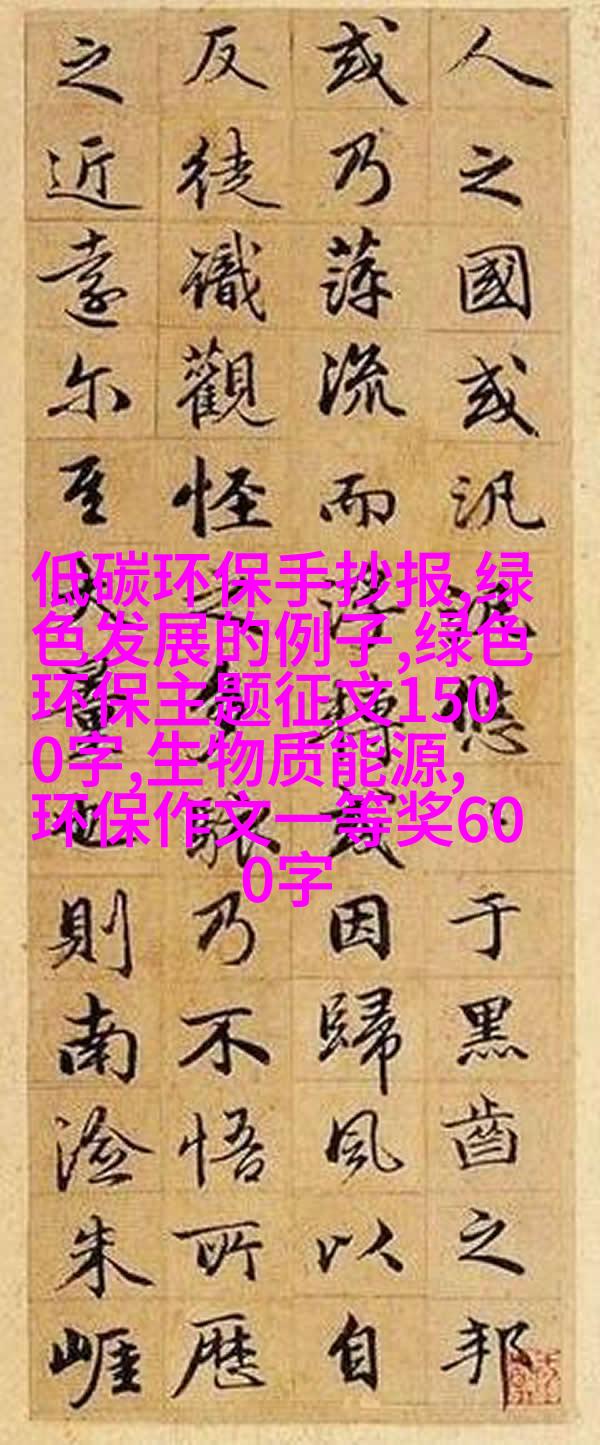 人之國或汎汎悠々于黑齒之邦
或乃萍流而浮轉或因歸風以自
反徒識觀怪之多駭乃不悟所歷
之近遠尔至大量也則南澰朱崕
低碳环保手抄报,绿
色发展的例子,绿色
环保主题征文150
0字,生物质能源,
环保作文一等奖60
0字